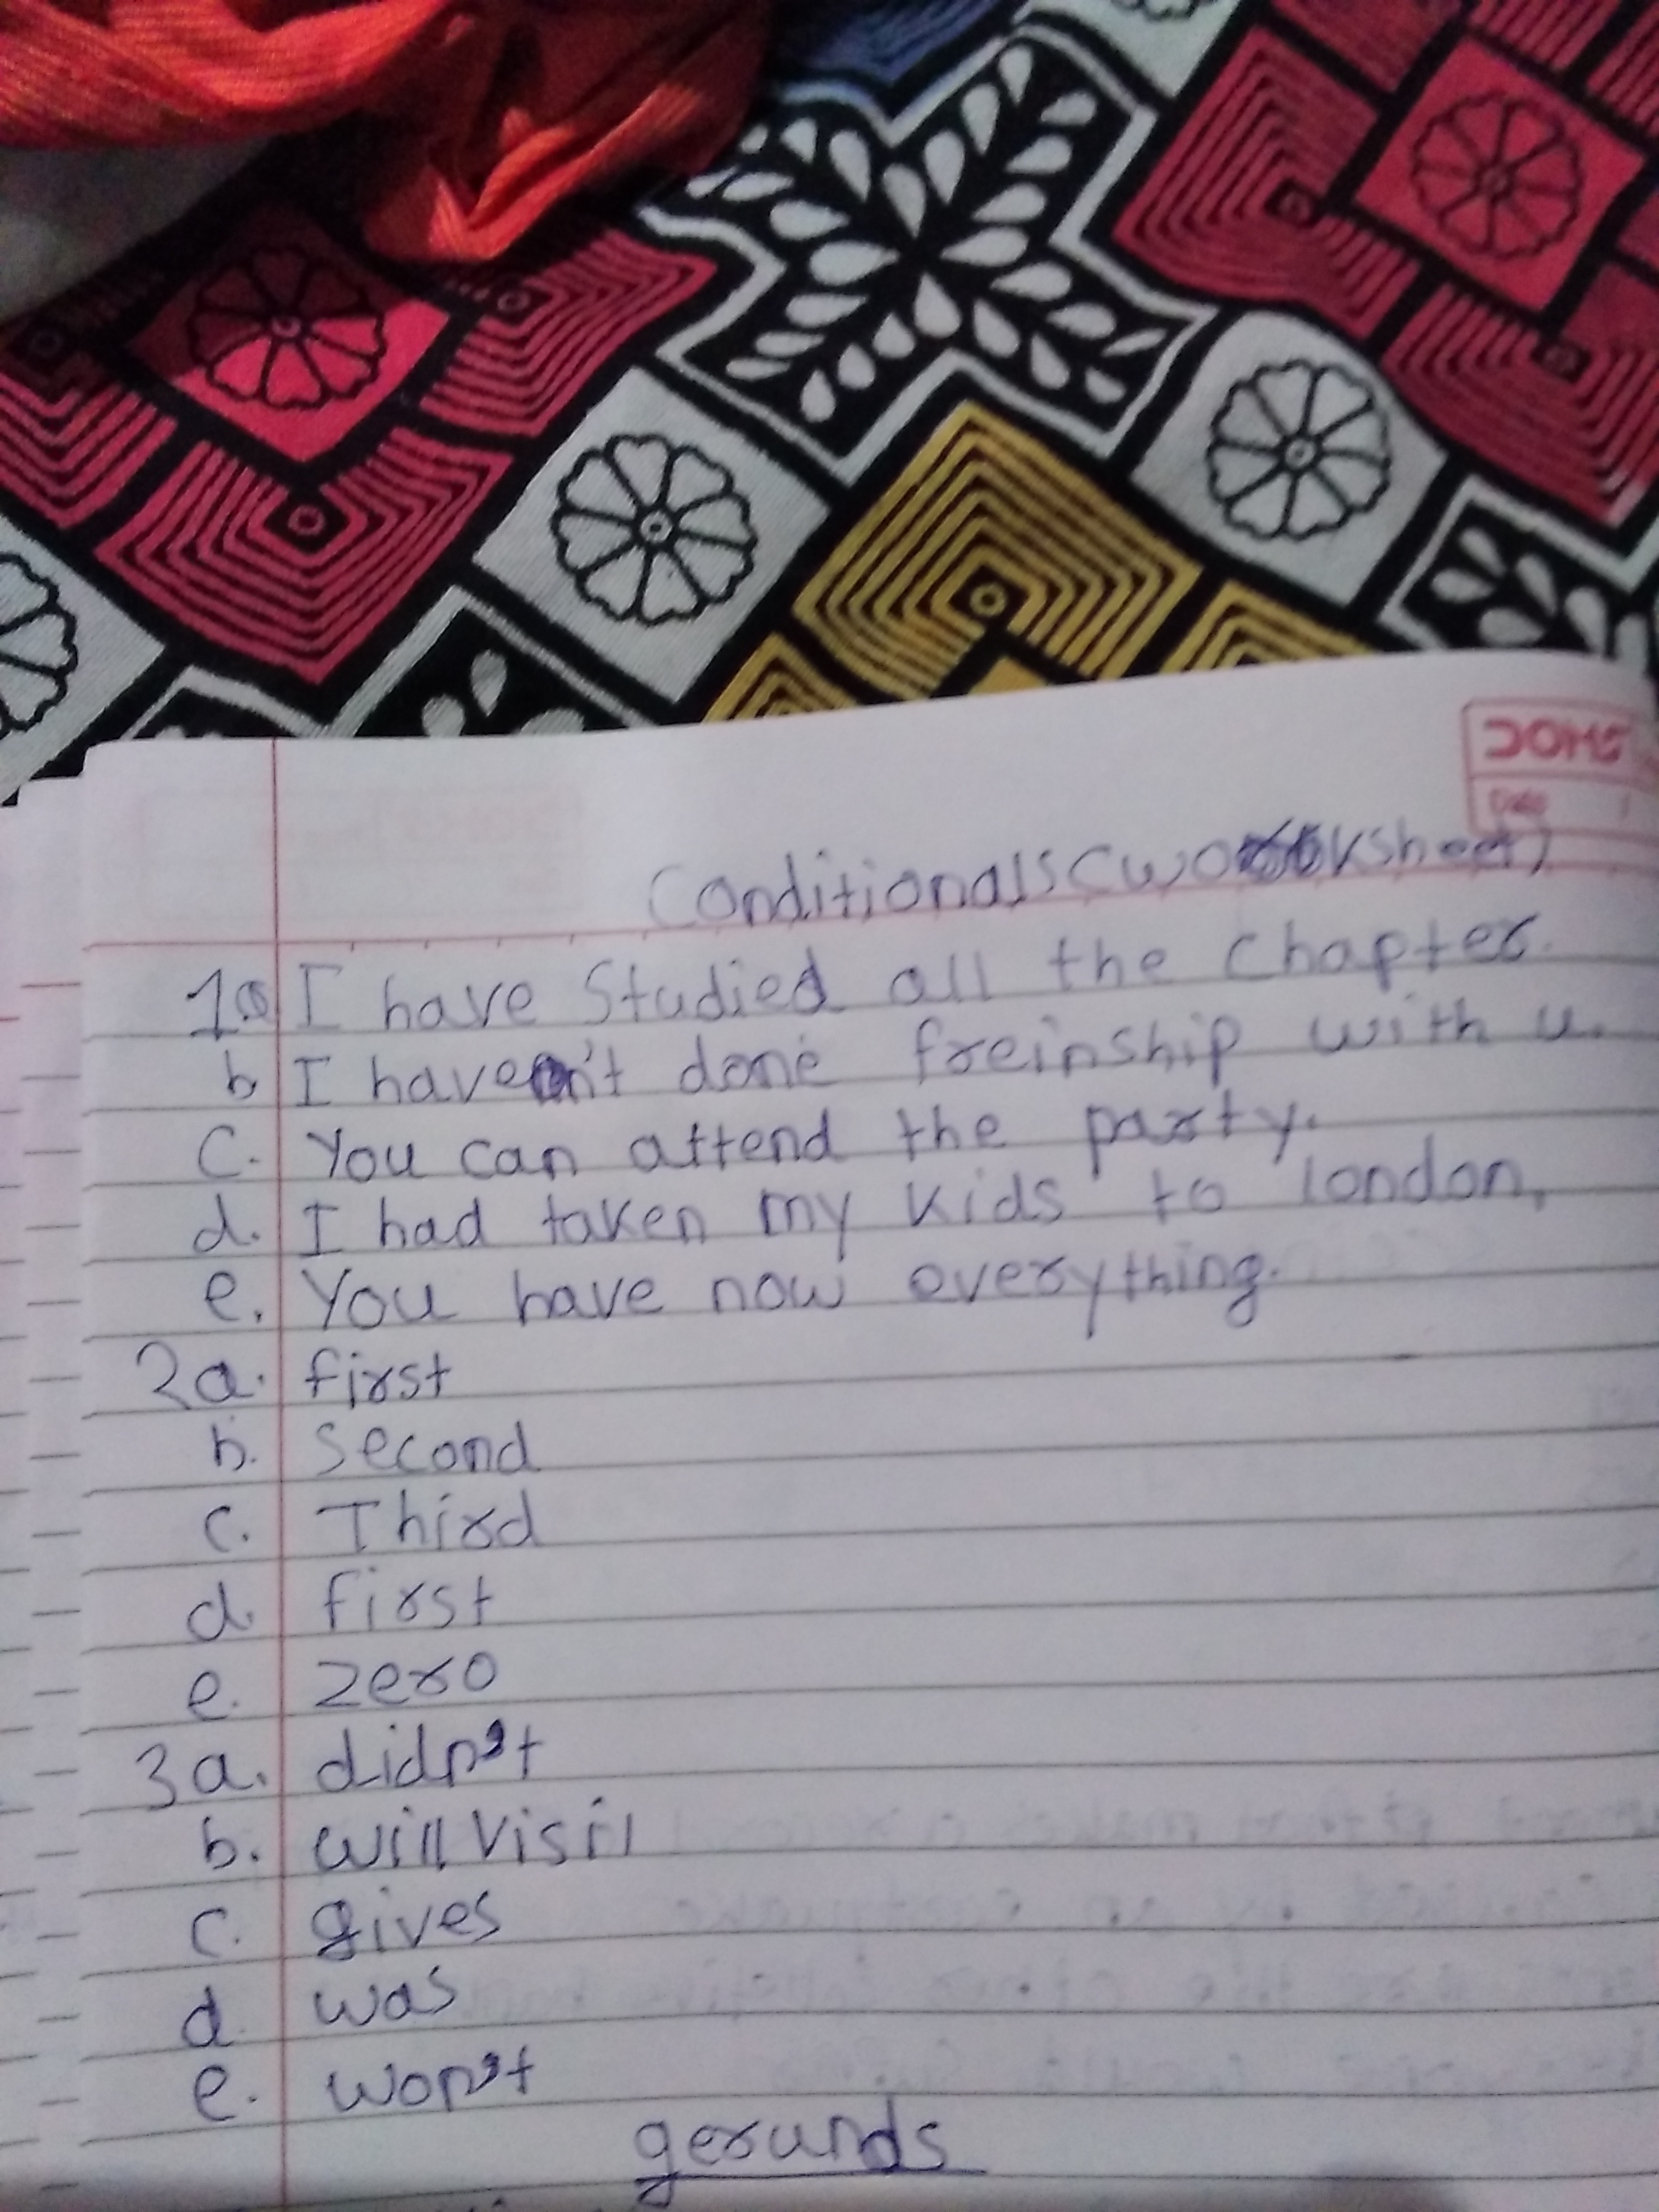 DOMS
Date
Conditionals (worksheet)
1a I have Studied all the Chapter.
b I haven't done freinship with u.
C. You can attend the party.
d. I had taken my kids to london,
e. You have now everything.
2a. first
b. Second
c. Third
d. first
e. zero
3a. didn't
b. will visit
c. gives
d was
e. won't
gerunds